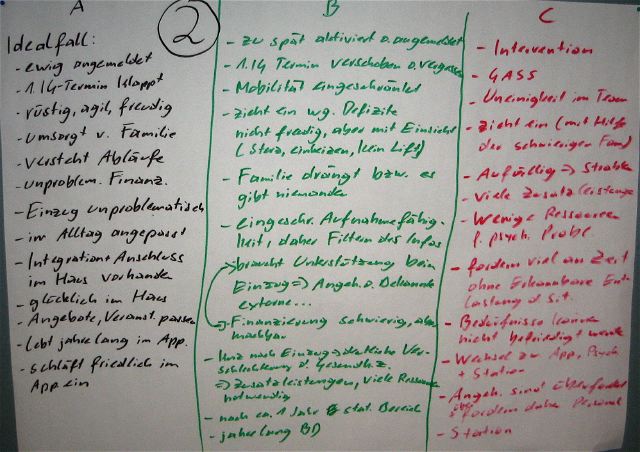 A
Idealfall:
- ewig angemeldet
- 1.IG-Termin klappt
- rüstig, agil, freudig
- umsorgt v. Familie
- versteht Abläufe
- unproblem. Finanz.
- Einzug unproblematisch
- im Alltag angepasst
- Integration + Anschluss
im Haus vorhanden
- glücklich im Haus
- Angebote, Veranst. passen
- lebt jahrelang im App.
- schläft friedlich im
App. ein
2
B
- zu spät aktiviert o. angemeldet
- 1.IG Termin verschoben o. vergessen
- Mobilität eingeschränkt
- zieht ein wg. Defizite
nicht freudig, aber mit Einsicht
(Sterz, einheizen, kein Lift)
- Familie drängt bzw. es
gibt niemanden
- eingeschr. Aufnahmefähig-
keit, daher Filtern des Infos
- braucht Unterstützung beim
Einzug => Angeh. o. Bekannte
externe...
-> Finanzierung schwierig, aber
machbar
- kurz nach Einzug => deutliche Ver-
schlechterung d. Gesundh.z.
=> Zusatzleistungen, viele Ressourcen
notwendig
- nach ca. 1 Jahr stat. Bereich
- jahrelang BD
C
- Intervention
- GASS
- Uneinigkeit im Team
- zieht ein (mit Hilfe
der schwierigen Fam)
- Auffällig =>
- viele Zusatzleistungen
- Wenige Ressourcen
f. psych. Probl.
- fordern viel an Zeit
ohne Erkennbare Ent-
lastung d. Sit.
- Bedürfnisse können
nicht befriedigt werden
- Wechsel zw. App, Psych
+ Station
- Angeh. sind überfordert
fordern daher Personal
- Station